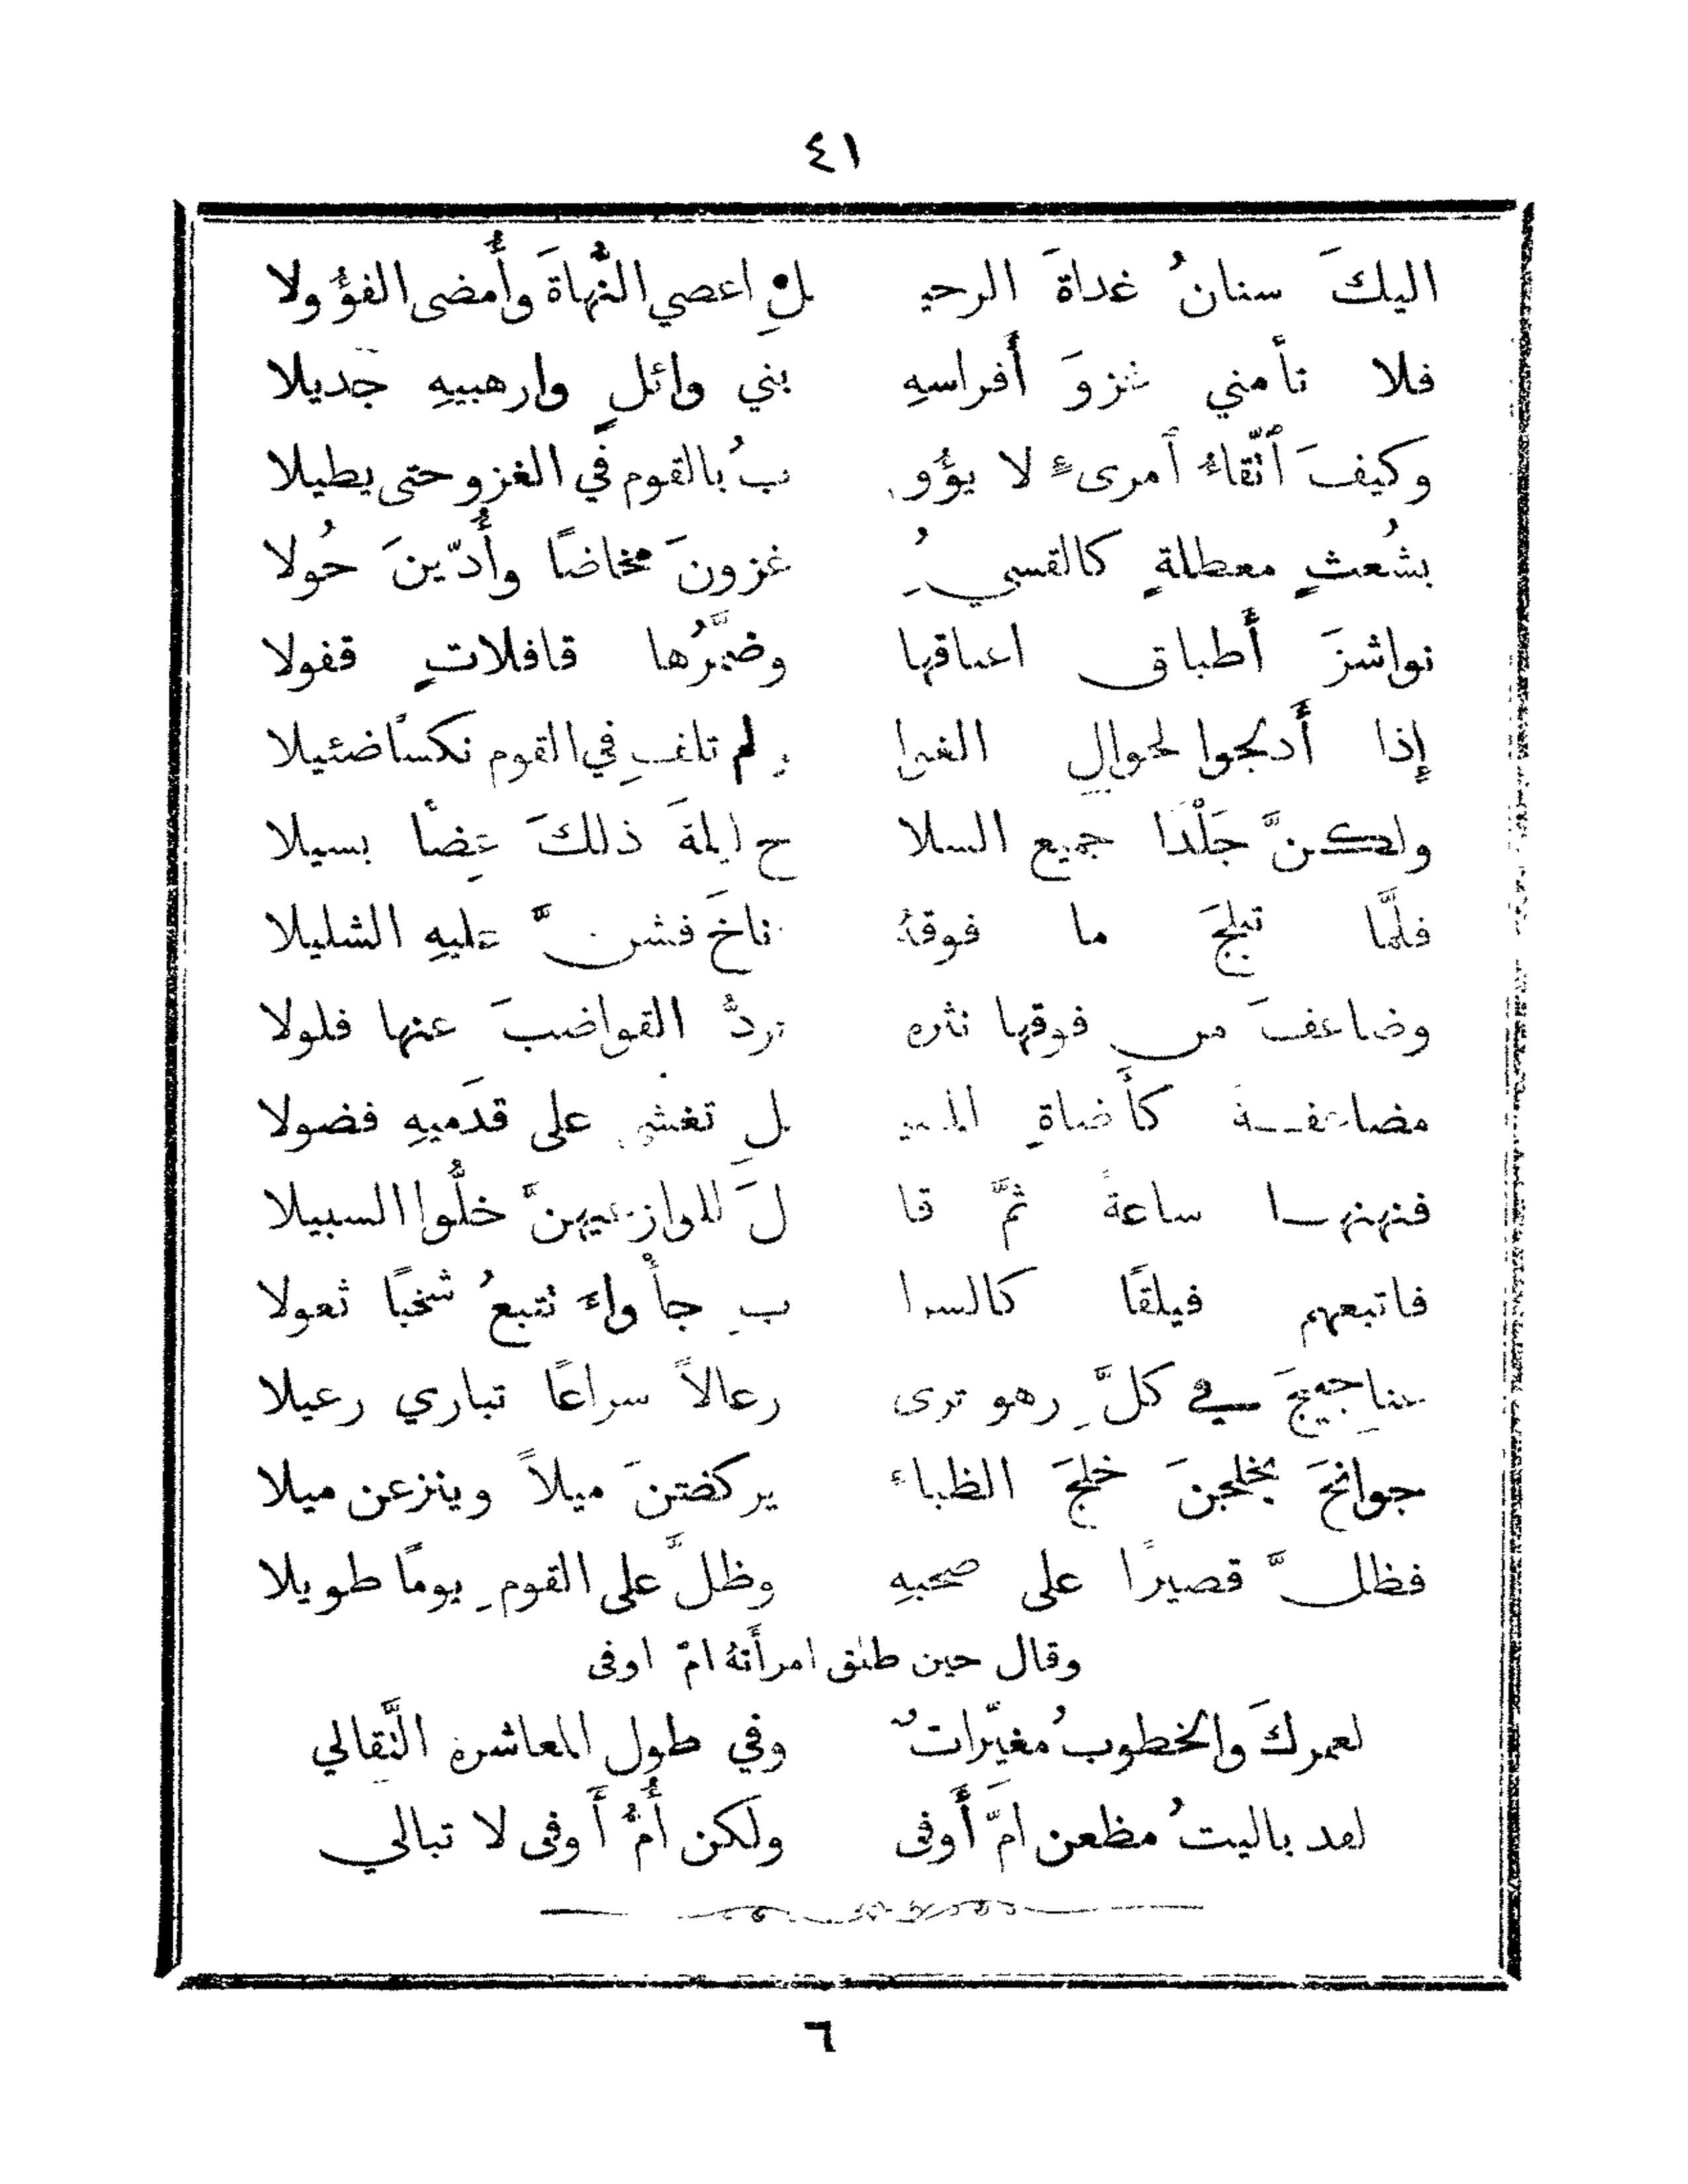 ٤١
اليكَ سنانُ غداةَ الرحيـ ـلِ اعصي النُّهاةَ وأُمضى الفؤُولا
فلا تأمني غزوَ أَفراسهِ بني وائلٍ وارهبيهِ جديلا
وكيفَ ٱتّقاءُ ٱمرىءٍ لا يؤُو بُ بالقوم في الغزو حتى يطيلا
بشُعثٍ معطلةٍ كالقسيُِّ غزونَ مخاضًا وأُدّينَ حُولا
نواشزَ أَطباق اعناقها وضمَّرُها قافلاتٍ قفولا
إِذا أَدلجوا لحوال الغوا رِ لم تلفِ في القوم نكسًا ضئيلا
ولكنَّ جَلْدًا جميع السلا ح ليلةَ ذلكَ عِضًّا بسيلا
فلَمَّا تبلجَ ما فوقهُ ناخَ فشنَّ عليهِ الشليلا
وضاعفَ من فوقها نثرة تردُّ القواضبَ عنها فلولا
مضاعفـة كأَضاةِ المسيـ ـلِ تغشى على قدَميهِ فضولا
فنهنهـا ساعةً ثمَّ قا لَ للوازعيهنَّ خلُّوا السبيلا
فاتبعهم فيلقًا كالسرا بِ جأْواءَ تتبعُ شخبًا ثعولا
عناجيجَ في كلِّ رهو ترى رعالاً سراعًا تباري رعيلا
جوانحَ يخلجنَ خلجَ الظباء يركضنَ ميلاً وينزعن ميلا
فظلَّ قصيرًا على صحبهِ وظلَّ على القومِ يومًا طويلا
وقال حين طلق امرأَتهُ امّ اوفى
لعمركَ والخطوبُ مغيّراتٌ وفي طول المعاشرة التَّقالي
لقد باليتُ مظعن امَّ أَوفى ولكن أُمُّ أَوفى لا تبالي
٦